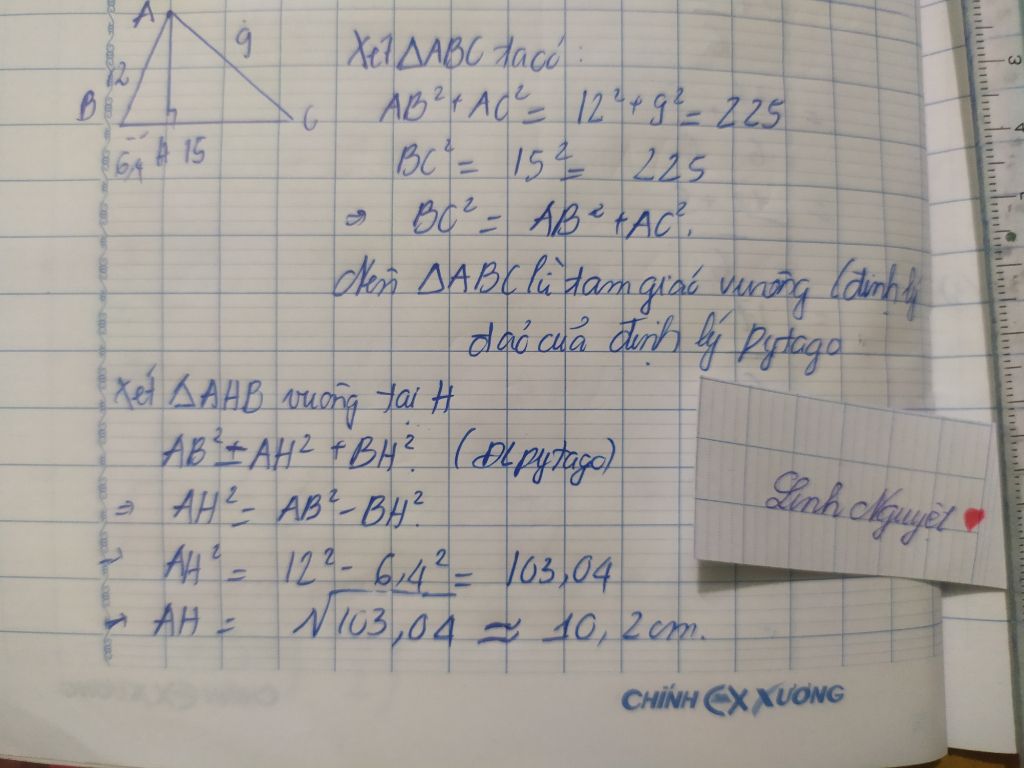 A
9
12
B
C
6,4 H 15
Xét ΔABC ta có:
AB² + AC² = 12² + 9² = 225
BC² = 15² = 225
⇒ BC² = AB² + AC².
Nên ΔABC là tam giác vuông (định lý
đảo của định lý pytago
Xét ΔAHB vuông tại H
AB² = AH² + BH². (ĐL pytago)
⇒ AH² = AB² - BH².
⇒ AH² = 12² - 6,4² = 103,04
⇒ AH = √103,04 ≈ 10,2cm.
Linh Nguyệt
CHÍNH EX XƯƠNG
3
4
5